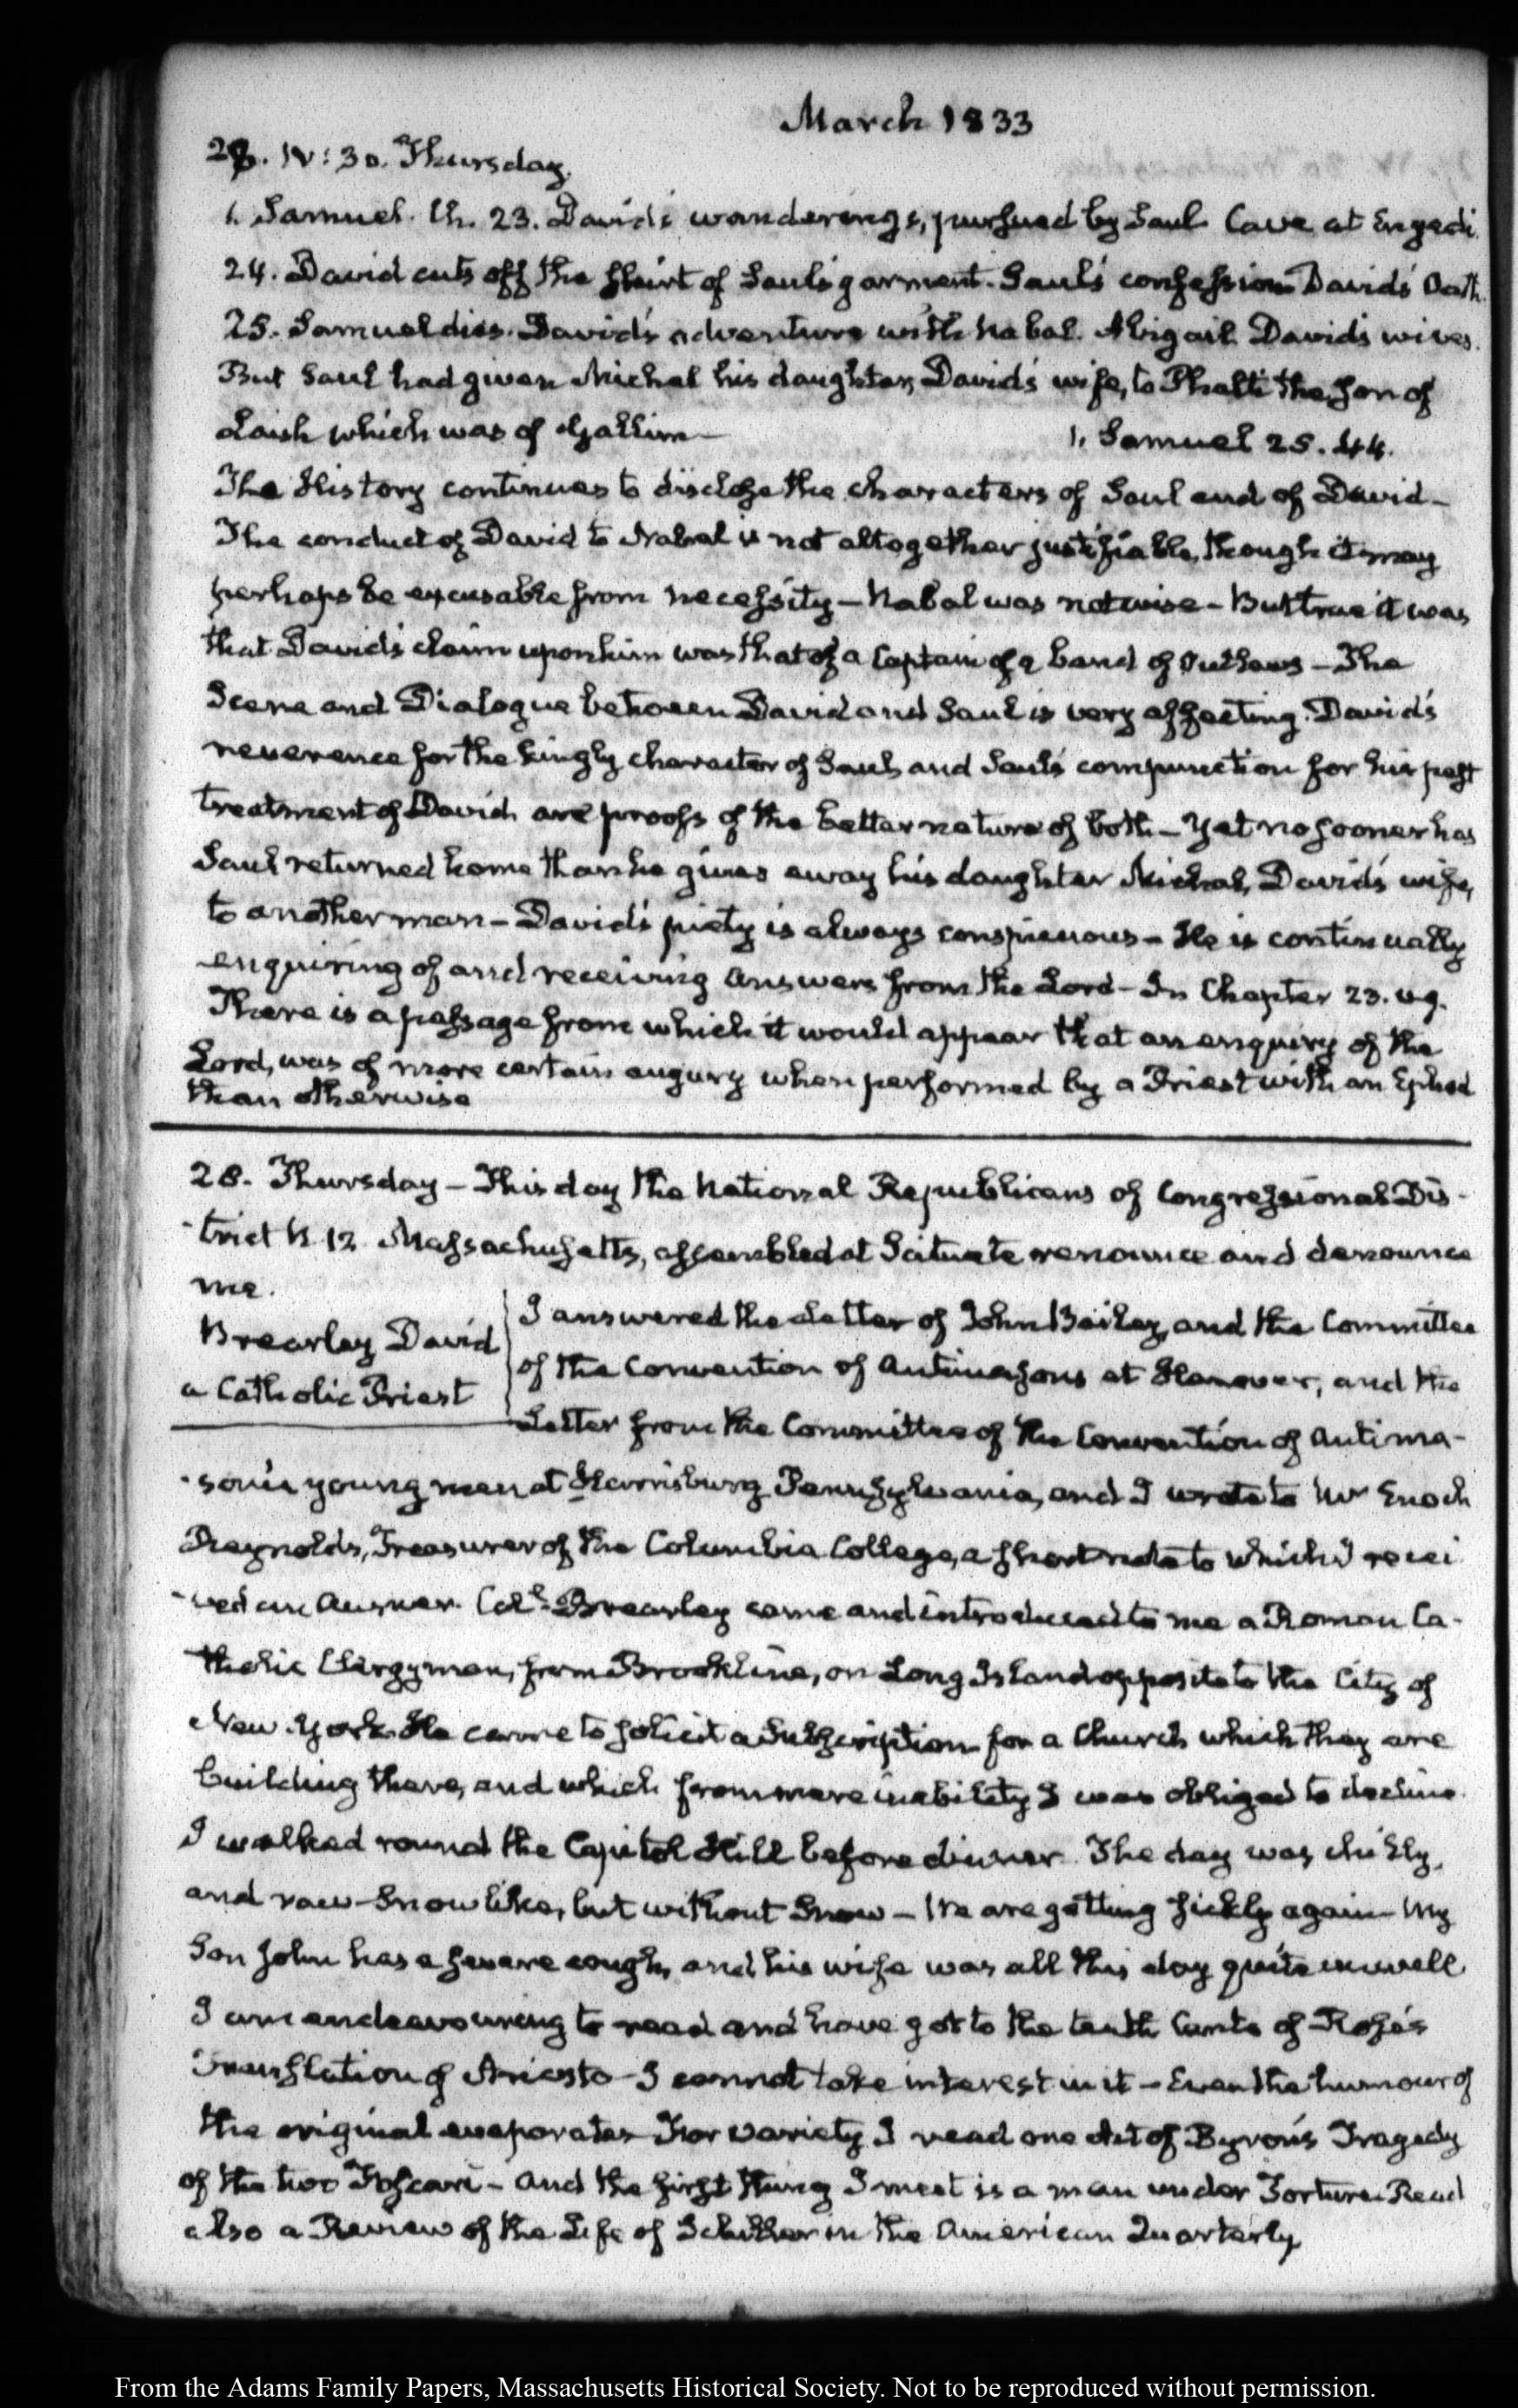 March 1833
28. IV: 30. Thursday.
1. Samuel. Ch. 23. David's wanderings, pursued by Saul Cave at Engedi.
24. David cuts off the skirt of Saul's garment. Saul's confession David's Oath.
25. Samuel dies. David's adventure with Nabal. Abigail David's wives.
But Saul had given Michal his daughter, David's wife, to Phalti the son of
Laish which was of Gallim—
1. Samuel 25. 44.
The History continues to disclose the characters of Saul and of David—
The conduct of David to Nabal is not altogether justifiable, though it may
perhaps be excusable from necessity— Nabal was not wise— But true it was
that David's claim upon him was that of a Captain of a band of Outlaws— The
Scene and Dialogue between David and Saul is very affecting. David's
reverence for the kingly character of Saul, and Saul's compunction for his past
treatment of David are proofs of the better nature of both— Yet no sooner has
Saul returned home than he gives away his daughter Michal, David's wife,
to another man— David's piety is always conspicuous— He is continually
enquiring of and receiving answers from the Lord— In Chapter 23. v9.
There is a passage from which it would appear that an enquiry of the
Lord, was of more certain augury when performed by a Priest with an Ephod
than otherwise
28. Thursday— This day the National Republicans of Congressional Dis-
-trict N. 12 Massachusetts, assembled at Scituate renounce and denounce
me.
Brearley David
a Catholic Priest
I answered the Letter of John Bailey, and the Committee
of the Convention of Antimasons at Hanover, and the
Letter from the Committee of the Convention of Antima-
-sonic young men at Harrisburg Pennsylvania, and I wrote to Mr Enoch
Reynolds, Treasurer of the Columbia College, a short note to which I recei
-ved an Answer. Coll. Brearley came and introduced to me a Roman Ca-
-tholic Clergyman, from Brookline, on Long Island opposite to the City of
New York. He came to solicit a Subscription for a Church which they are
building there, and which from mere inability I was obliged to decline.
I walked round the Capitol Hill before dinner. The day was chilly,
and raw— Snow like, but without Snow— We are getting sickly again— My
Son John has a severe cough, and his wife was all this day quite unwell
I am endeavouring to read and have got to the tenth Canto of Rose's
Translation of Ariosto— I cannot take interest in it— Even the humour of
the original evaporates— For variety I read one Act of Byron's Tragedy
of the two Foscari— and the first thing I meet is a man under Torture. Read
also a Review of the Life of Schiller in the American Quarterly
From the Adams Family Papers, Massachusetts Historical Society. Not to be reproduced without permission.